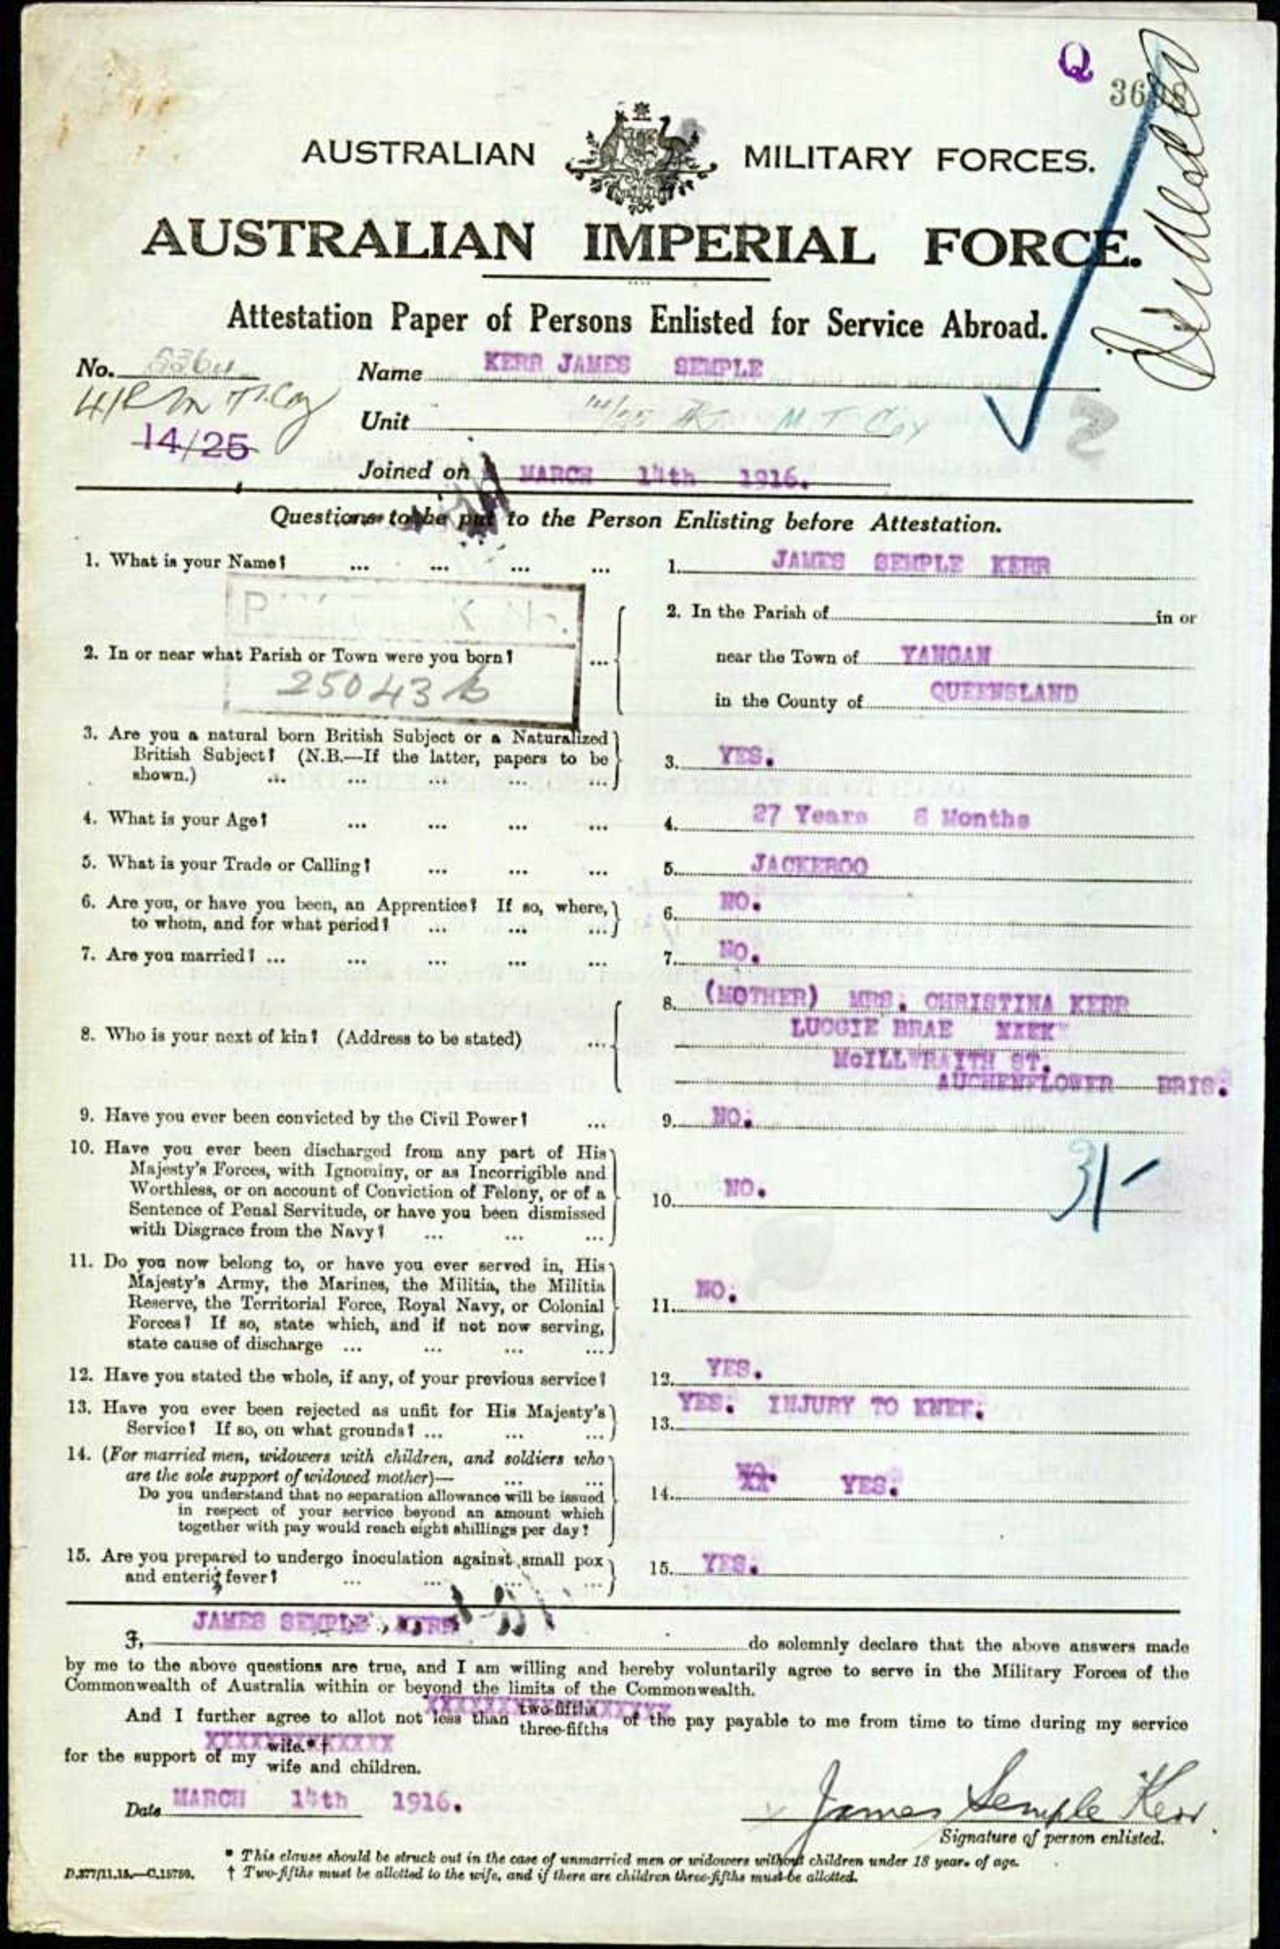 Q
36
AUSTRALIAN MILITARY FORCES.
AUSTRALIAN IMPERIAL FORCE.
Attestation Paper of Persons Enlisted for Service Abroad.
No.
Name KERR JAMES SEMPLE
14/25
Unit M T Coy
2
Joined on MARCH 14th 1916.
Questions to be put to the Person Enlisting before Attestation.
1. What is your Name? ... ... ... ... 1. JAMES SEMPLE KERR
2. In or near what Parish or Town were you born? ... 2. In the Parish of in or
near the Town of YANGAN
in the County of QUEENSLAND
25043
3. Are you a natural born British Subject or a Naturalized
British Subject? (N.B.—If the latter, papers to be
shown.) ... ... ... ... 3. YES.
4. What is your Age? ... ... ... ... 4. 27 Years Months
5. What is your Trade or Calling? ... ... ... 5. JACKEROO
6. Are you, or have you been, an Apprentice? If so, where,
to whom, and for what period? ... ... ... 6. NO.
7. Are you married? ... ... ... ... ... 7. NO.
8. Who is your next of kin? (Address to be stated) ... 8. (MOTHER) MRS. CHRISTINA KERR
LUGGIE BRAE
McILLWRAITH ST.
AUCHENFLOWER BRIS.
9. Have you ever been convicted by the Civil Power? ... 9. NO.
10. Have you ever been discharged from any part of His
Majesty's Forces, with Ignominy, or as Incorrigible and
Worthless, or on account of Conviction of Felony, or of a
Sentence of Penal Servitude, or have you been dismissed
with Disgrace from the Navy? ... ... ... 10. NO.
3/-
11. Do you now belong to, or have you ever served in, His
Majesty's Army, the Marines, the Militia, the Militia
Reserve, the Territorial Force, Royal Navy, or Colonial
Forces? If so, state which, and if not now serving,
state cause of discharge ... ... ... ... 11. NO.
12. Have you stated the whole, if any, of your previous service? 12. YES.
13. Have you ever been rejected as unfit for His Majesty's
Service? If so, on what grounds? ... ... ... 13. YES. INJURY TO KNEE.
14. (For married men, widowers with children, and soldiers who
are the sole support of widowed mother)— ... ...
Do you understand that no separation allowance will be issued
in respect of your service beyond an amount which
together with pay would reach eight shillings per day? 14. NO. YES.
15. Are you prepared to undergo inoculation against small pox
and enteric fever? ... ... ... ... 15. YES.
I, JAMES SEMPLE KERR do solemnly declare that the above answers made
by me to the above questions are true, and I am willing and hereby voluntarily agree to serve in the Military Forces of the
Commonwealth of Australia within or beyond the limits of the Commonwealth.
And I further agree to allot not less than two-fifths three-fifths of the pay payable to me from time to time during my service
for the support of my wife.*† wife and children.
Date MARCH 14th 1916.
James Semple Kerr.
Signature of person enlisted.
* This clause should be struck out in the case of unmarried men or widowers without children under 18 years of age.
D.377/11.15.—C.15759. † Two-fifths must be allotted to the wife, and if there are children three-fifths must be allotted.